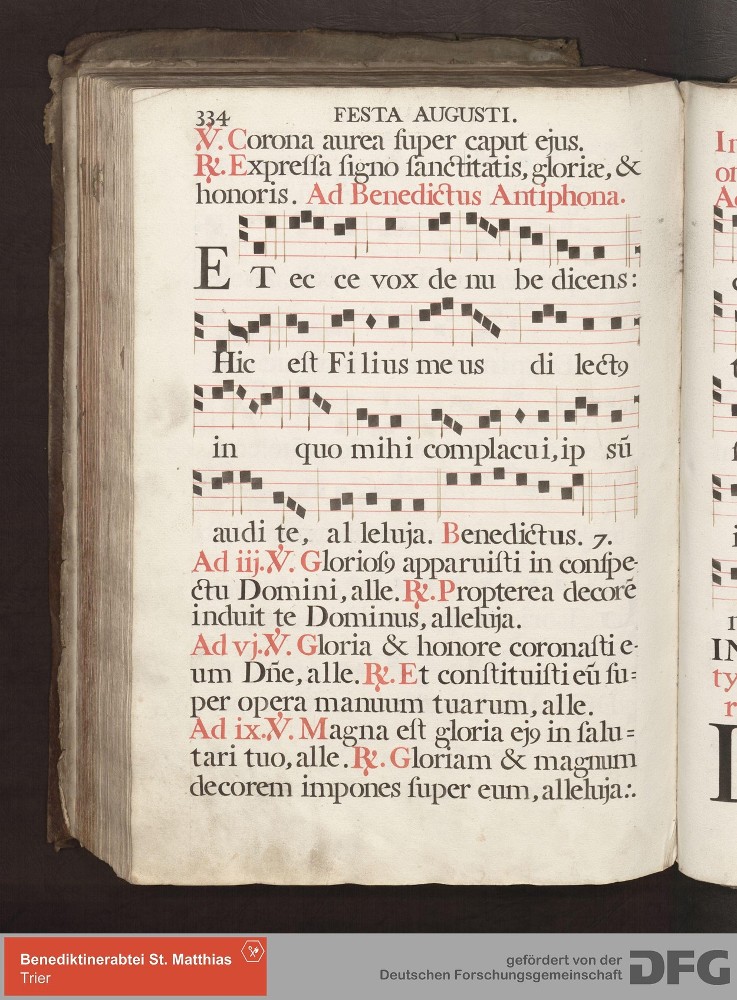 334 FESTA AUGUSTI.
℣. Corona aurea ſuper caput ejus.
℟. Expreſſa ſigno ſanctitatis, gloriæ, &
honoris. Ad Benedictus Antiphona.
ET ec ce vox de nu be dicens:
Hic eſt Fi lius me us di lectꝰ
in quo mihi complacui, ip sū
audi te, al leluja. Benedictus. 7.
Ad iij. ℣. Glorioſꝰ apparuiſti in conſpe-
ctu Domini, alle. ℟. Propterea decorē
induit te Dominus, alleluja.
Ad vj. ℣. Gloria & honore coronaſti e-
um Dñe, alle. ℟. Et conſtituiſti eū ſu=
per opera manuum tuarum, alle.
Ad ix. ℣. Magna eſt gloria ejꝰ in ſalu=
tari tuo, alle. ℟. Gloriam & magnum
decorem impones ſuper eum, alleluja:.
IN
ty
r
Benediktinerabtei St. Matthias
Trier
gefördert von der
Deutschen Forschungsgemeinschaft
DFG